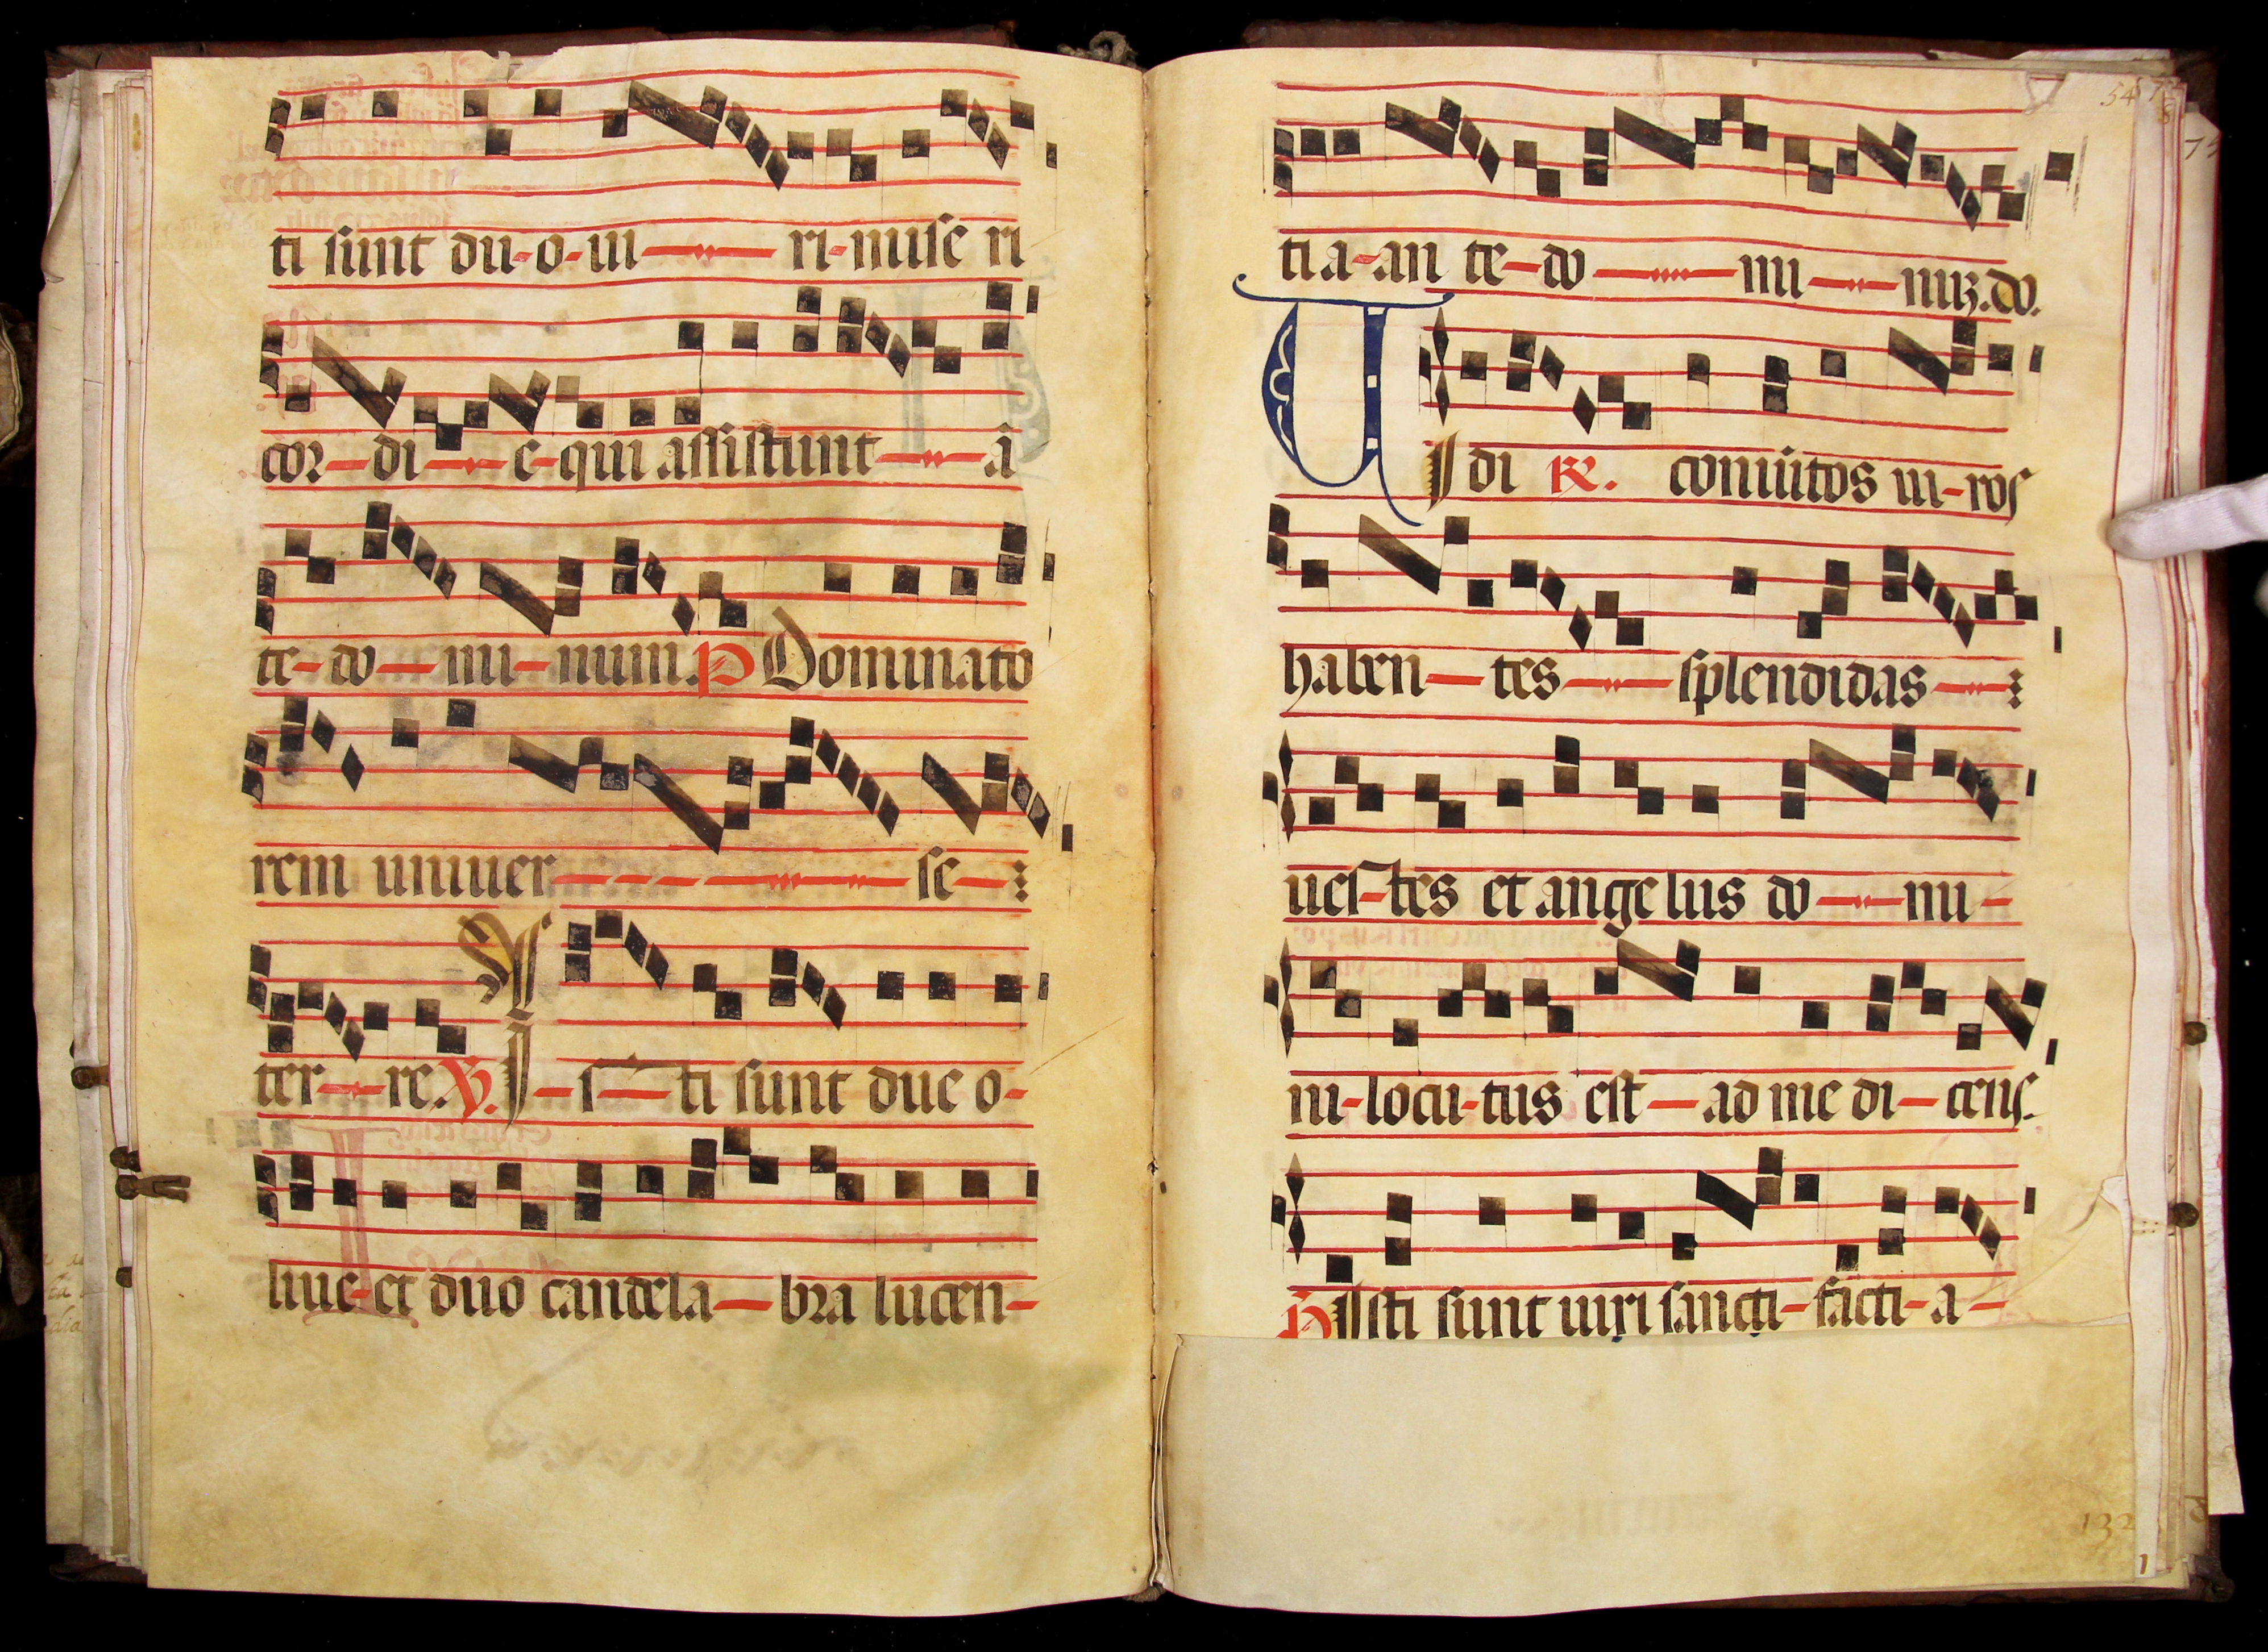 ti sunt du-o-ui ri-mise ri
cor-di-e-qui assistunt ā
te-do-mi-num. P Dominato
rem uniuer se
ter-re. V. I-s-ti sunt due o-
liue-et duo candela-bra lucen-
54
ti a-an te-do mi niz. do.
U
I di R. coniūtos ui-ros
haben-tes splendidas
ues-tes et angelus do mi-
ni-locu-tus est-ad me di-cens.
P Isti sunt uiri sancti-facti-a-
132
1